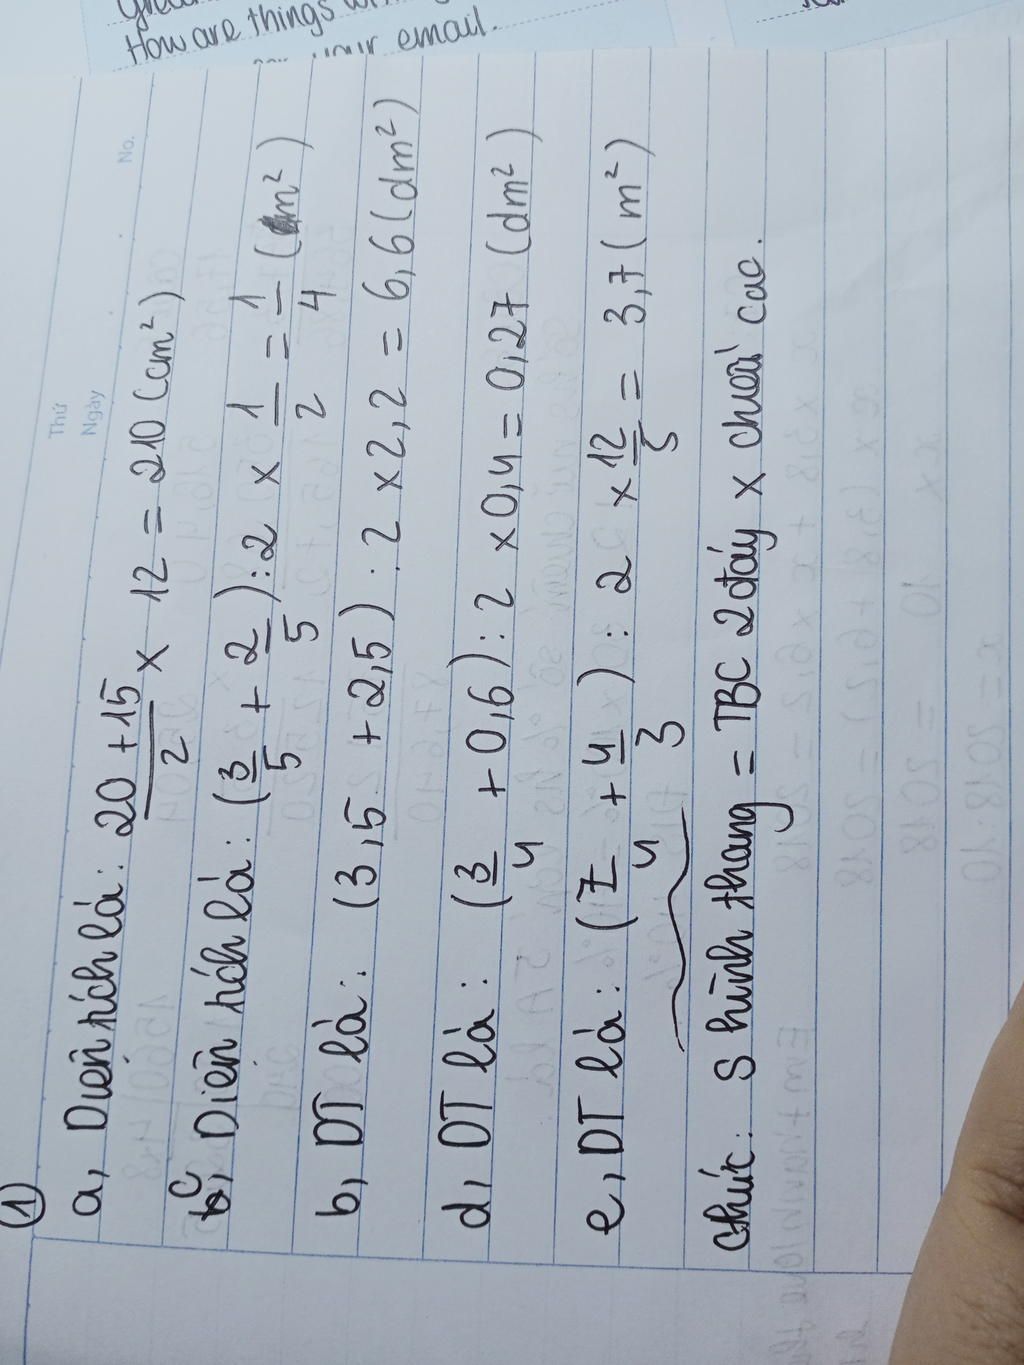 How are things w
your email.
Thứ
Ngày
No.
①
a, Diện tích là: 20 + 15 / 2 x 12 = 210 (cm²)
c, Diện tích là: (3/5 + 2/5) : 2 x 1/2 = 1/4 (m²)
b, DT là: (3,5 + 2,5) : 2 x 2,2 = 6,6 (dm²)
d, DT là: (3/4 + 0,6) : 2 x 0,4 = 0,27 (dm²)
e, DT là: (7/4 + 4/3) : 2 x 12/5 = 3,7 (m²)
thức: S hình thang = TBC 2 đáy x chiều cao.